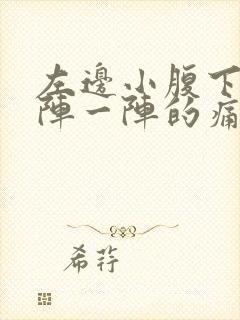 左邊小腹下
陣一陣的痛
希荇